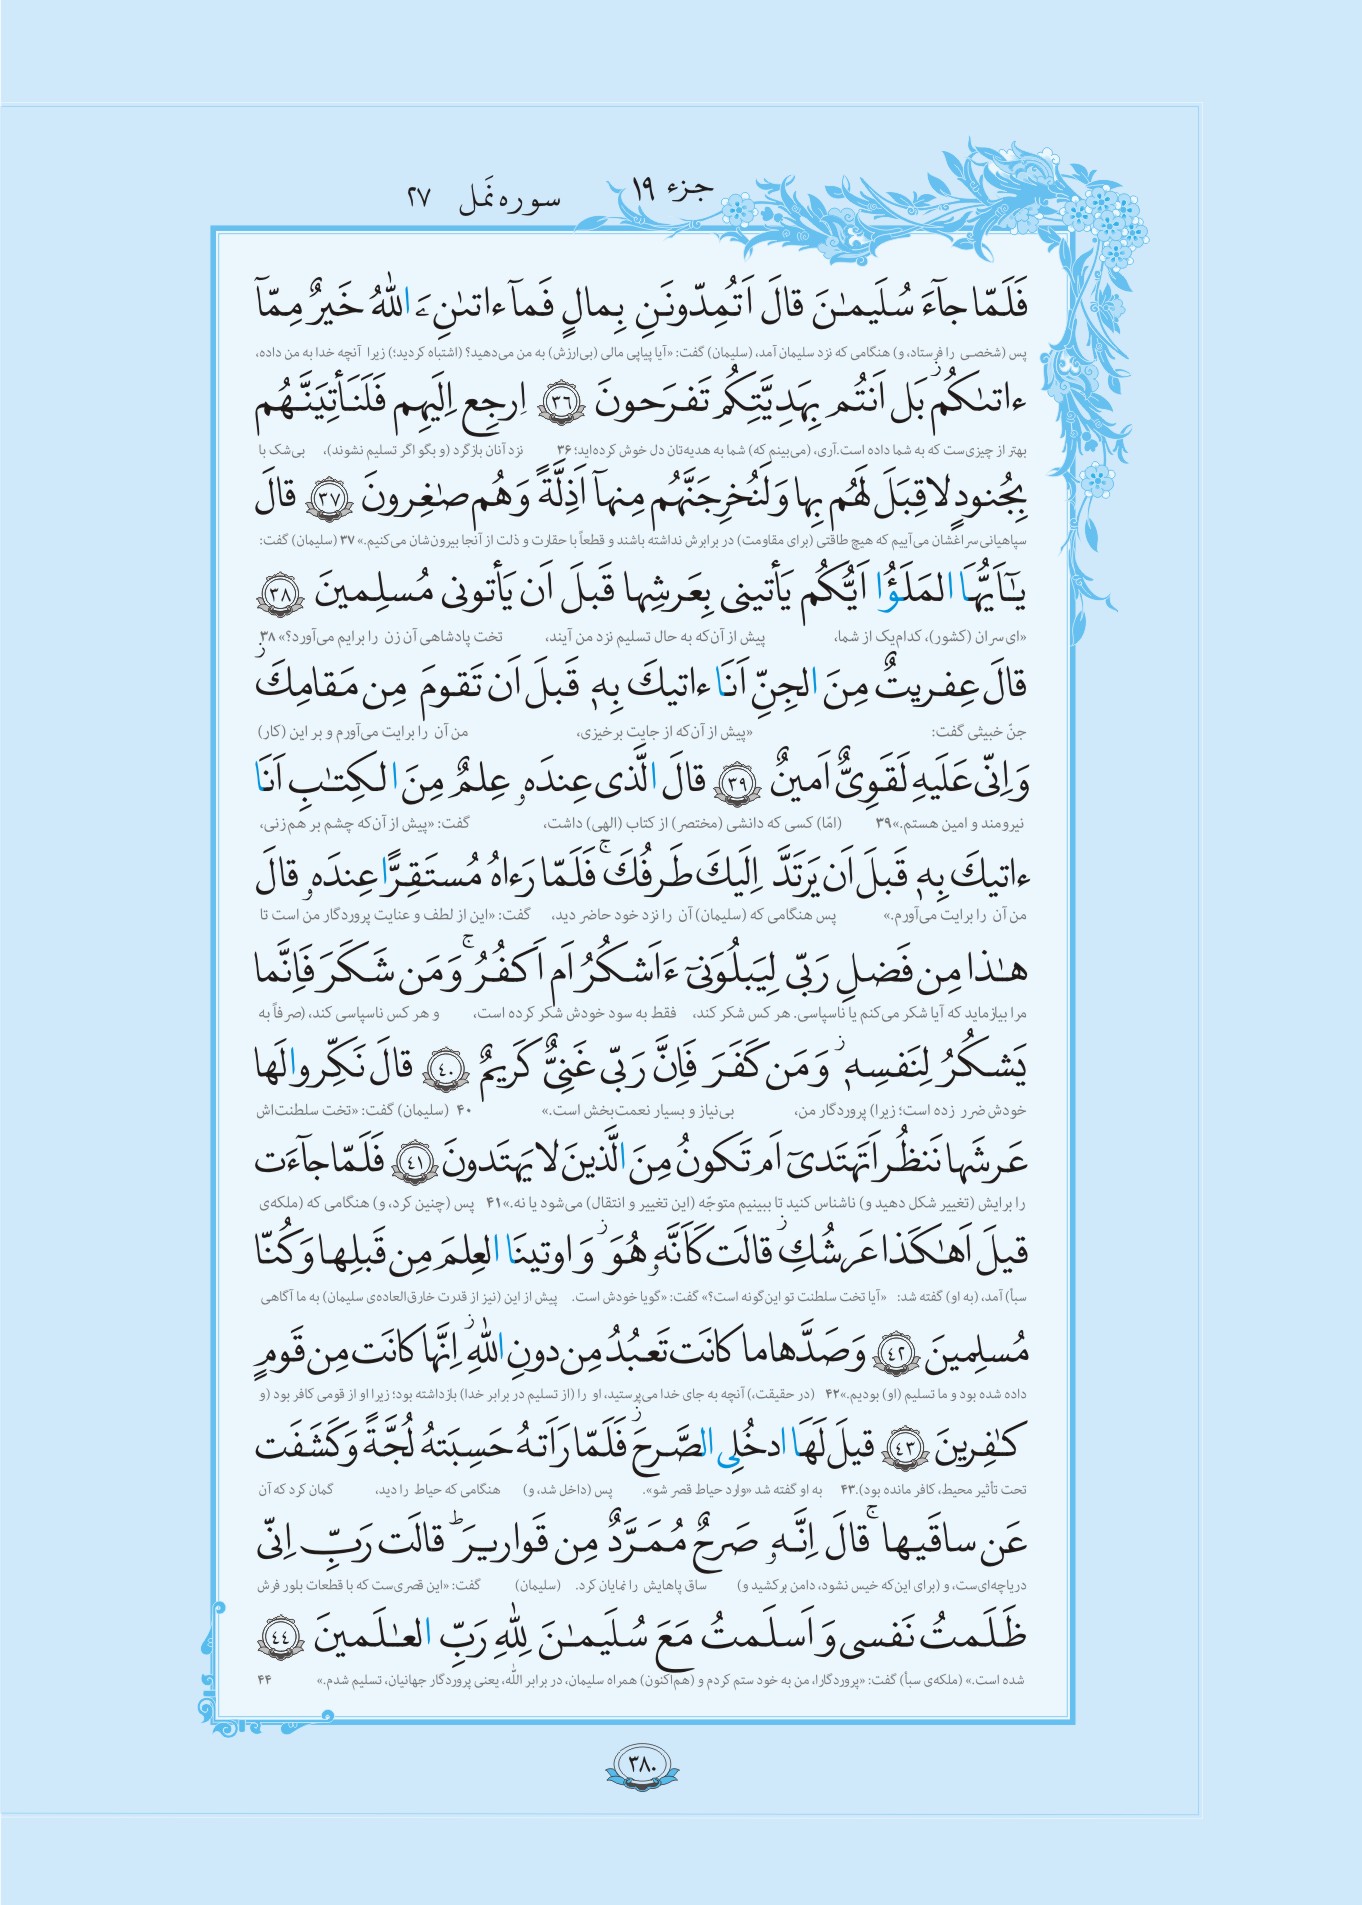 جزء ۱۹
سوره نَمل ۲۷
فَلَمّا جآءَ سُلَيمٰنَ قالَ اَتُمِدّونَنِ بِمالٍ فَمآ ءاتىٰنِۦَ اللّٰهُ خَيرٌ مِمّآ
پس (شخصی را فرستاد، و) هنگامی که نزد سلیمان آمد، (سلیمان) گفت: «آیا پیاپی مالی (بی‌ارزش) به من می‌دهید؟ (اشتباه کردید؛) زیرا آنچه خدا به من داده،
ءاتىٰكُم ۚ بَل اَنتُم بِهَدِيَّتِكُم تَفرَحونَ ﴿۳۶﴾ اِرجِع اِلَيهِم فَلَنَأتِيَنَّهُم
بهتر از چیزی‌ست که به شما داده است. آری، (می‌بینم که) شما به هدیه‌تان دل خوش کرده‌اید؛ ۳۶ نزد آنان بازگرد (و بگو اگر تسلیم نشوند)، بی‌شک با
بِجُنودٍ لا قِبَلَ لَهُم بِها وَ لَنُخرِجَنَّهُم مِنهآ اَذِلَّةً وَ هُم صٰغِرونَ ﴿۳۷﴾ قالَ
سپاهیانی سراغشان می‌آییم که هیچ طاقتی (برای مقاومت) در برابرش نداشته باشند و قطعاً با حقارت و ذلت از آنجا بیرون‌شان می‌کنیم.» ۳۷ (سلیمان) گفت:
يٰٓاَيُّهَا المَلَؤُا اَيُّكُم يَأتينى بِعَرشِها قَبلَ اَن يَأتونى مُسلِمينَ ﴿۳۸﴾
«ای سران (کشور)، کدام‌یک از شما، پیش از آن‌که به حال تسلیم نزد من آیند، تخت پادشاهی آن زن را برایم می‌آورد؟» ۳۸
قالَ عِفريتٌ مِنَ الجِنِّ اَنَا ءاتيكَ بِهٖ قَبلَ اَن تَقومَ مِن مَقامِكَ ز
جنّ خبیثی گفت: «پیش از آن‌که از جایت برخیزی، من آن را برایت می‌آورم و بر این (کار)
وَ اِنّى عَلَيهِ لَقَوِىٌّ اَمينٌ ﴿۳۹﴾ قالَ الَّذى عِندَهٗ عِلمٌ مِنَ الكِتٰبِ اَنَا
نیرومند و امین هستم.» ۳۹ (امّا) کسی که دانشی (مختصر) از کتاب (الهی) داشت، گفت: «پیش از آن‌که چشم بر هم زنی،
ءاتيكَ بِهٖ قَبلَ اَن يَرتَدَّ اِلَيكَ طَرفُكَ ج فَلَمّا رَءاهُ مُستَقِرًّا عِندَهٗ قالَ
من آن را برایت می‌آورم.» پس هنگامی که (سلیمان) آن را نزد خود حاضر دید، گفت: «این از لطف و عنایت پروردگار من است تا
هٰذا مِن فَضلِ رَبّى لِيَبلُوَنىٓ ءَاَشكُرُ اَم اَكفُرُ ج وَ مَن شَكَرَ فَاِنَّما
مرا بیازماید که آیا شکر می‌کنم یا ناسپاسی. هر کس شکر کند، فقط به سود خودش شکر کرده است، و هر کس ناسپاسی کند، (صرفاً به
يَشكُرُ لِنَفسِهٖ ز وَ مَن كَفَرَ فَاِنَّ رَبّى غَنِىٌّ كَريمٌ ﴿۴۰﴾ قالَ نَكِّروا لَها
خودش ضرر زده است؛ زیرا) پروردگار من، بی‌نیاز و بسیار نعمت‌بخش است.» ۴۰ (سلیمان) گفت: «تخت سلطنت‌اش
عَرشَها نَنظُر اَتَهتَدىٓ اَم تَكونُ مِنَ الَّذينَ لا يَهتَدونَ ﴿۴۱﴾ فَلَمّا جآءَت
را برایش (تغییر شکل دهید و) ناشناس کنید تا ببینیم متوجّه (این تغییر و انتقال) می‌شود یا نه.» ۴۱ پس (چنین کرد، و) هنگامی که (ملکه‌ی
قيلَ اَهٰكَذا عَرشُكِ ز قالَت كَاَنَّهٗ هُوَ ز وَ اوتينَا العِلمَ مِن قَبلِها وَ كُنّا
سبأ) آمد، (به او) گفته شد: «آیا تخت سلطنت تو این‌گونه است؟» گفت: «گویا خودش است. پیش از این (نیز از قدرت خارق‌العاده‌ی سلیمان) به ما آگاهی
مُسلِمينَ ﴿۴۲﴾ وَ صَدَّها ما كانَت تَعبُدُ مِن دونِ اللّٰهِ ز اِنَّها كانَت مِن قَومٍ
داده شده بود و ما تسلیم (او) بودیم.» ۴۲ (در حقیقت،) آنچه به جای خدا می‌پرستید، او را (از تسلیم در برابر خدا) بازداشته بود؛ زیرا او از قومی کافر بود (و
كٰفِرينَ ﴿۴۳﴾ قيلَ لَهَا ادخُلِى الصَّرحَ ز فَلَمّا رَاَتهُ حَسِبَتهُ لُجَّةً وَ كَشَفَت
تحت تأثیر محیط، کافر مانده بود). ۴۳ به او گفته شد «وارد حیاط قصر شو». پس (داخل شد، و) هنگامی که حیاط را دید، گمان کرد که آن
عَن ساقَيها ج قالَ اِنَّهٗ صَرحٌ مُمَرَّدٌ مِن قَواريرَ ط قالَت رَبِّ اِنّى
دریاچه‌ای‌ست، و (برای این‌که خیس نشود، دامن برکشید و) ساق پاهایش را نمایان کرد. (سلیمان) گفت: «این قصری‌ست که با قطعات بلور فرش
ظَلَمتُ نَفسى وَ اَسلَمتُ مَعَ سُلَيمٰنَ لِلّٰهِ رَبِّ العٰلَمينَ ﴿۴۴﴾
شده است.» (ملکه‌ی سبأ) گفت: «پروردگارا، من به خود ستم کردم و (هم‌اکنون) همراه سلیمان، در برابر الله، یعنی پروردگار جهانیان، تسلیم شدم.» ۴۴
۳۸۰